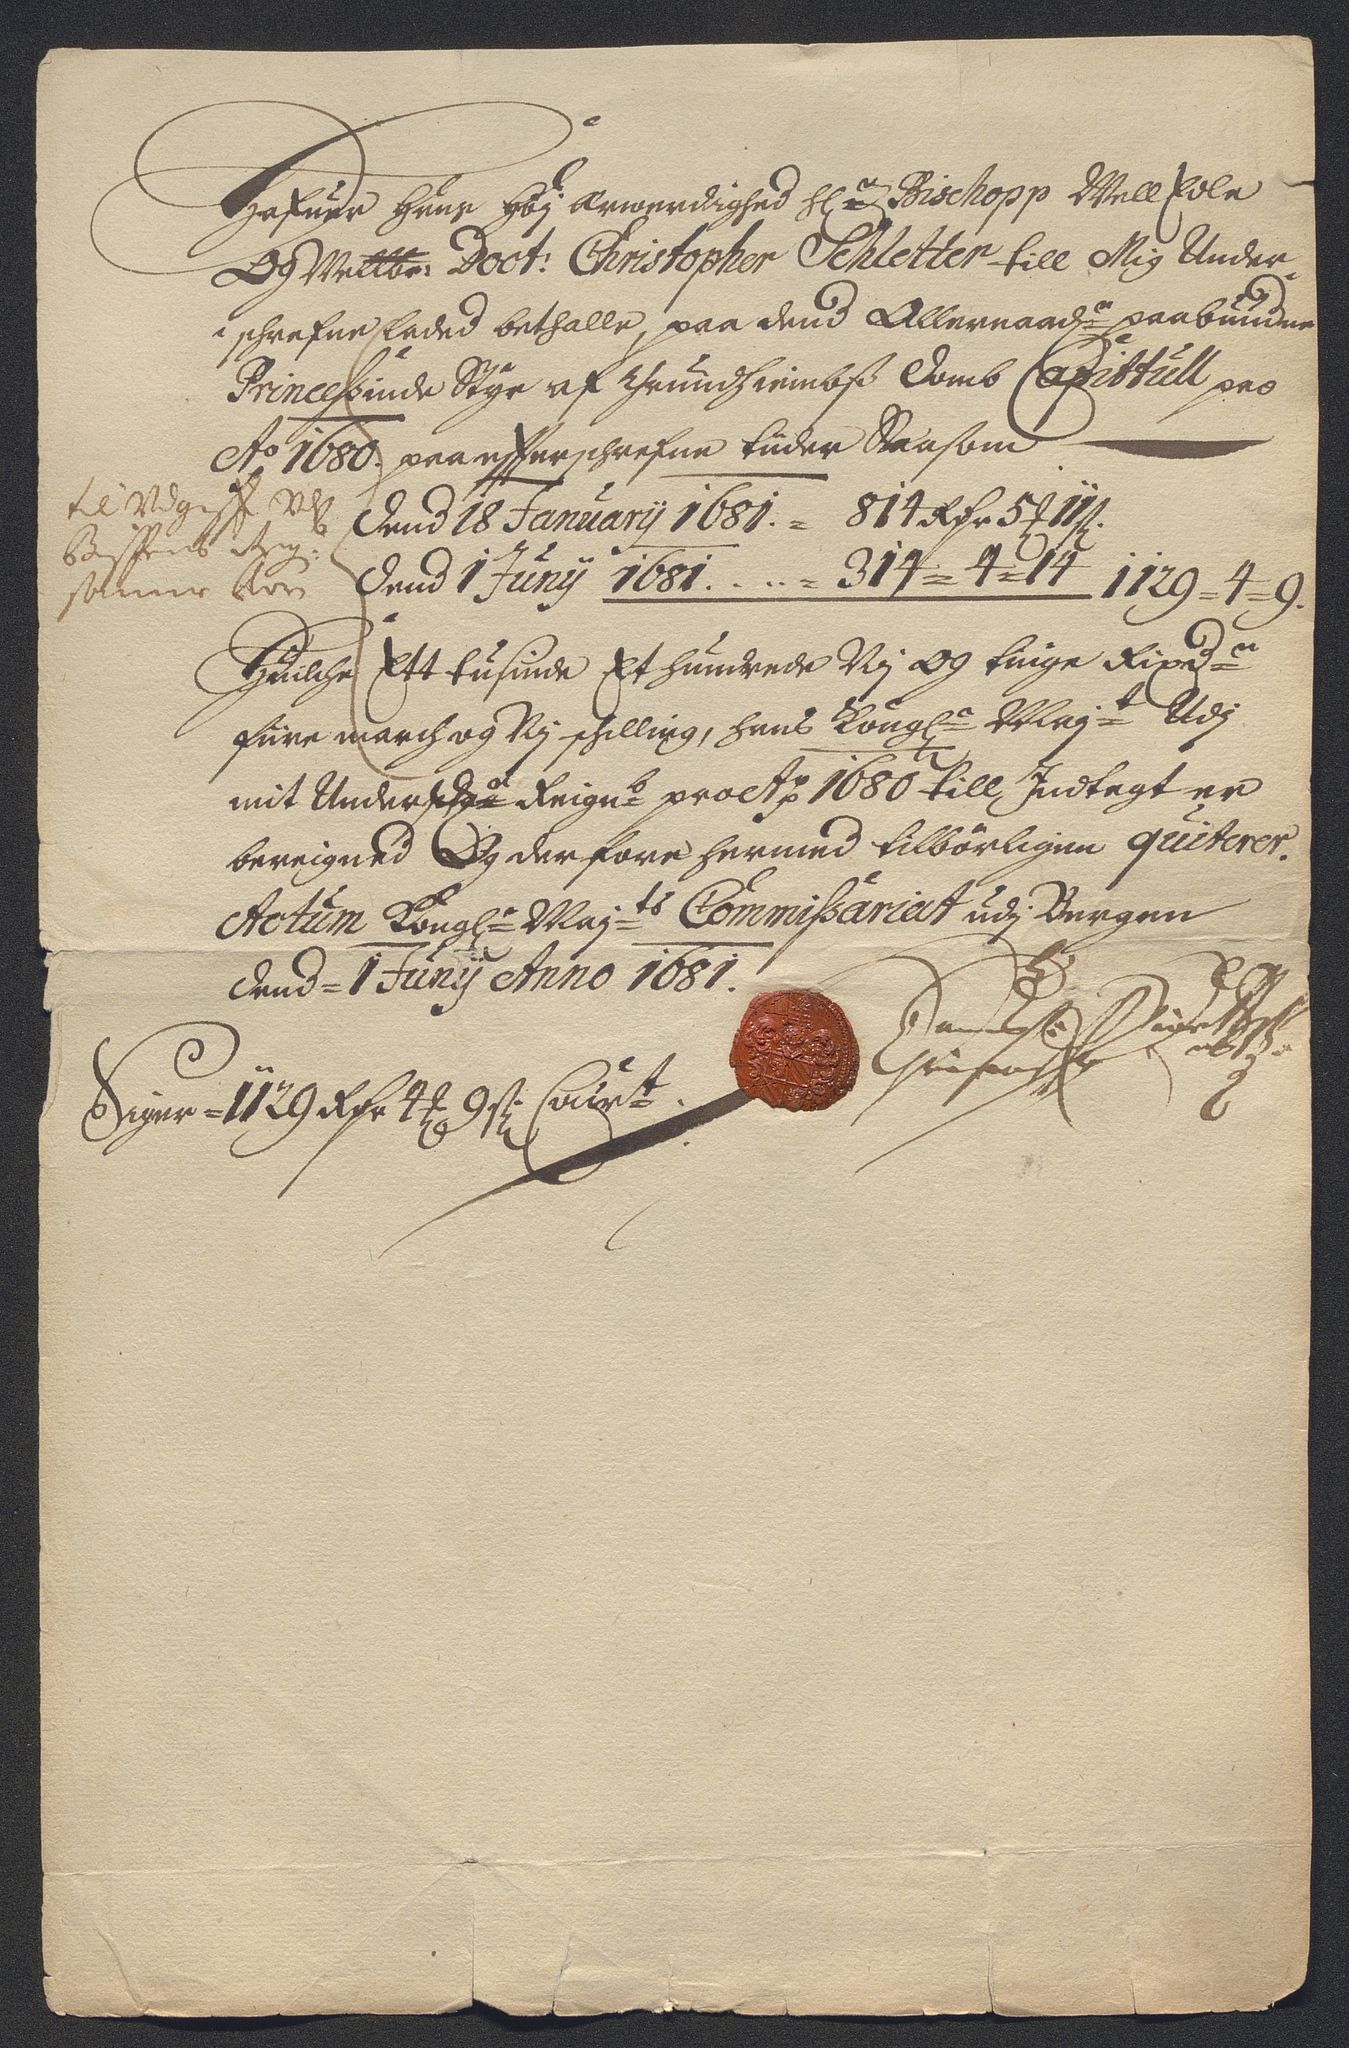 Hafuer Hans Höj Ærwerdighed Hr Bischopp Well Edle
Og Wellbr: Doct: Christopher Schletter till Mig Under
schrefne laded bethalle, paa dend Allernaadr paabundne
Princeßinde Styr af Thrundhiembß Domb Capittull pro
Ao 1680. paa effterschrefne tider Naasom
til Udgifft udj
Dend 18 January 1681. = 814 Rdr 5 11 ß.
Dend 1 Juny 1681. . . . = 314 = 4 = 14 1129 = 4 = 9.
Huilche Ett tusinde Et hundrede Nij Og tiuge Rixdr
fiire march og Nij schilling, hans Kongl Mayt Udj
mit Underdr Reignb pro Ao 1680 till Indtegt er
bereigned Og derfore hermed tilbörligen quiterer.
Actum Kongl Mayts Commißariat udj Bergen
Dend = 1 Juny Anno 1681.
Siger = 1129 Rdr 4 9 ß Court.